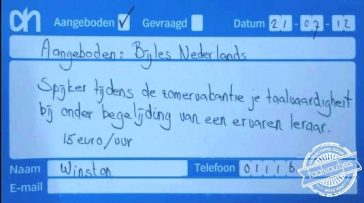 ah Aangeboden ✓ Gevraagd Datum 21-07-12
Aangeboden: Bijles Nederlands
Spijker tijdens de zomervabantie je taalvaardigheit
bij onder begelijding van een ervaren leraar.
15 euro/uur
Naam Winston Telefoon 01116
E-mail
taalvoutjes